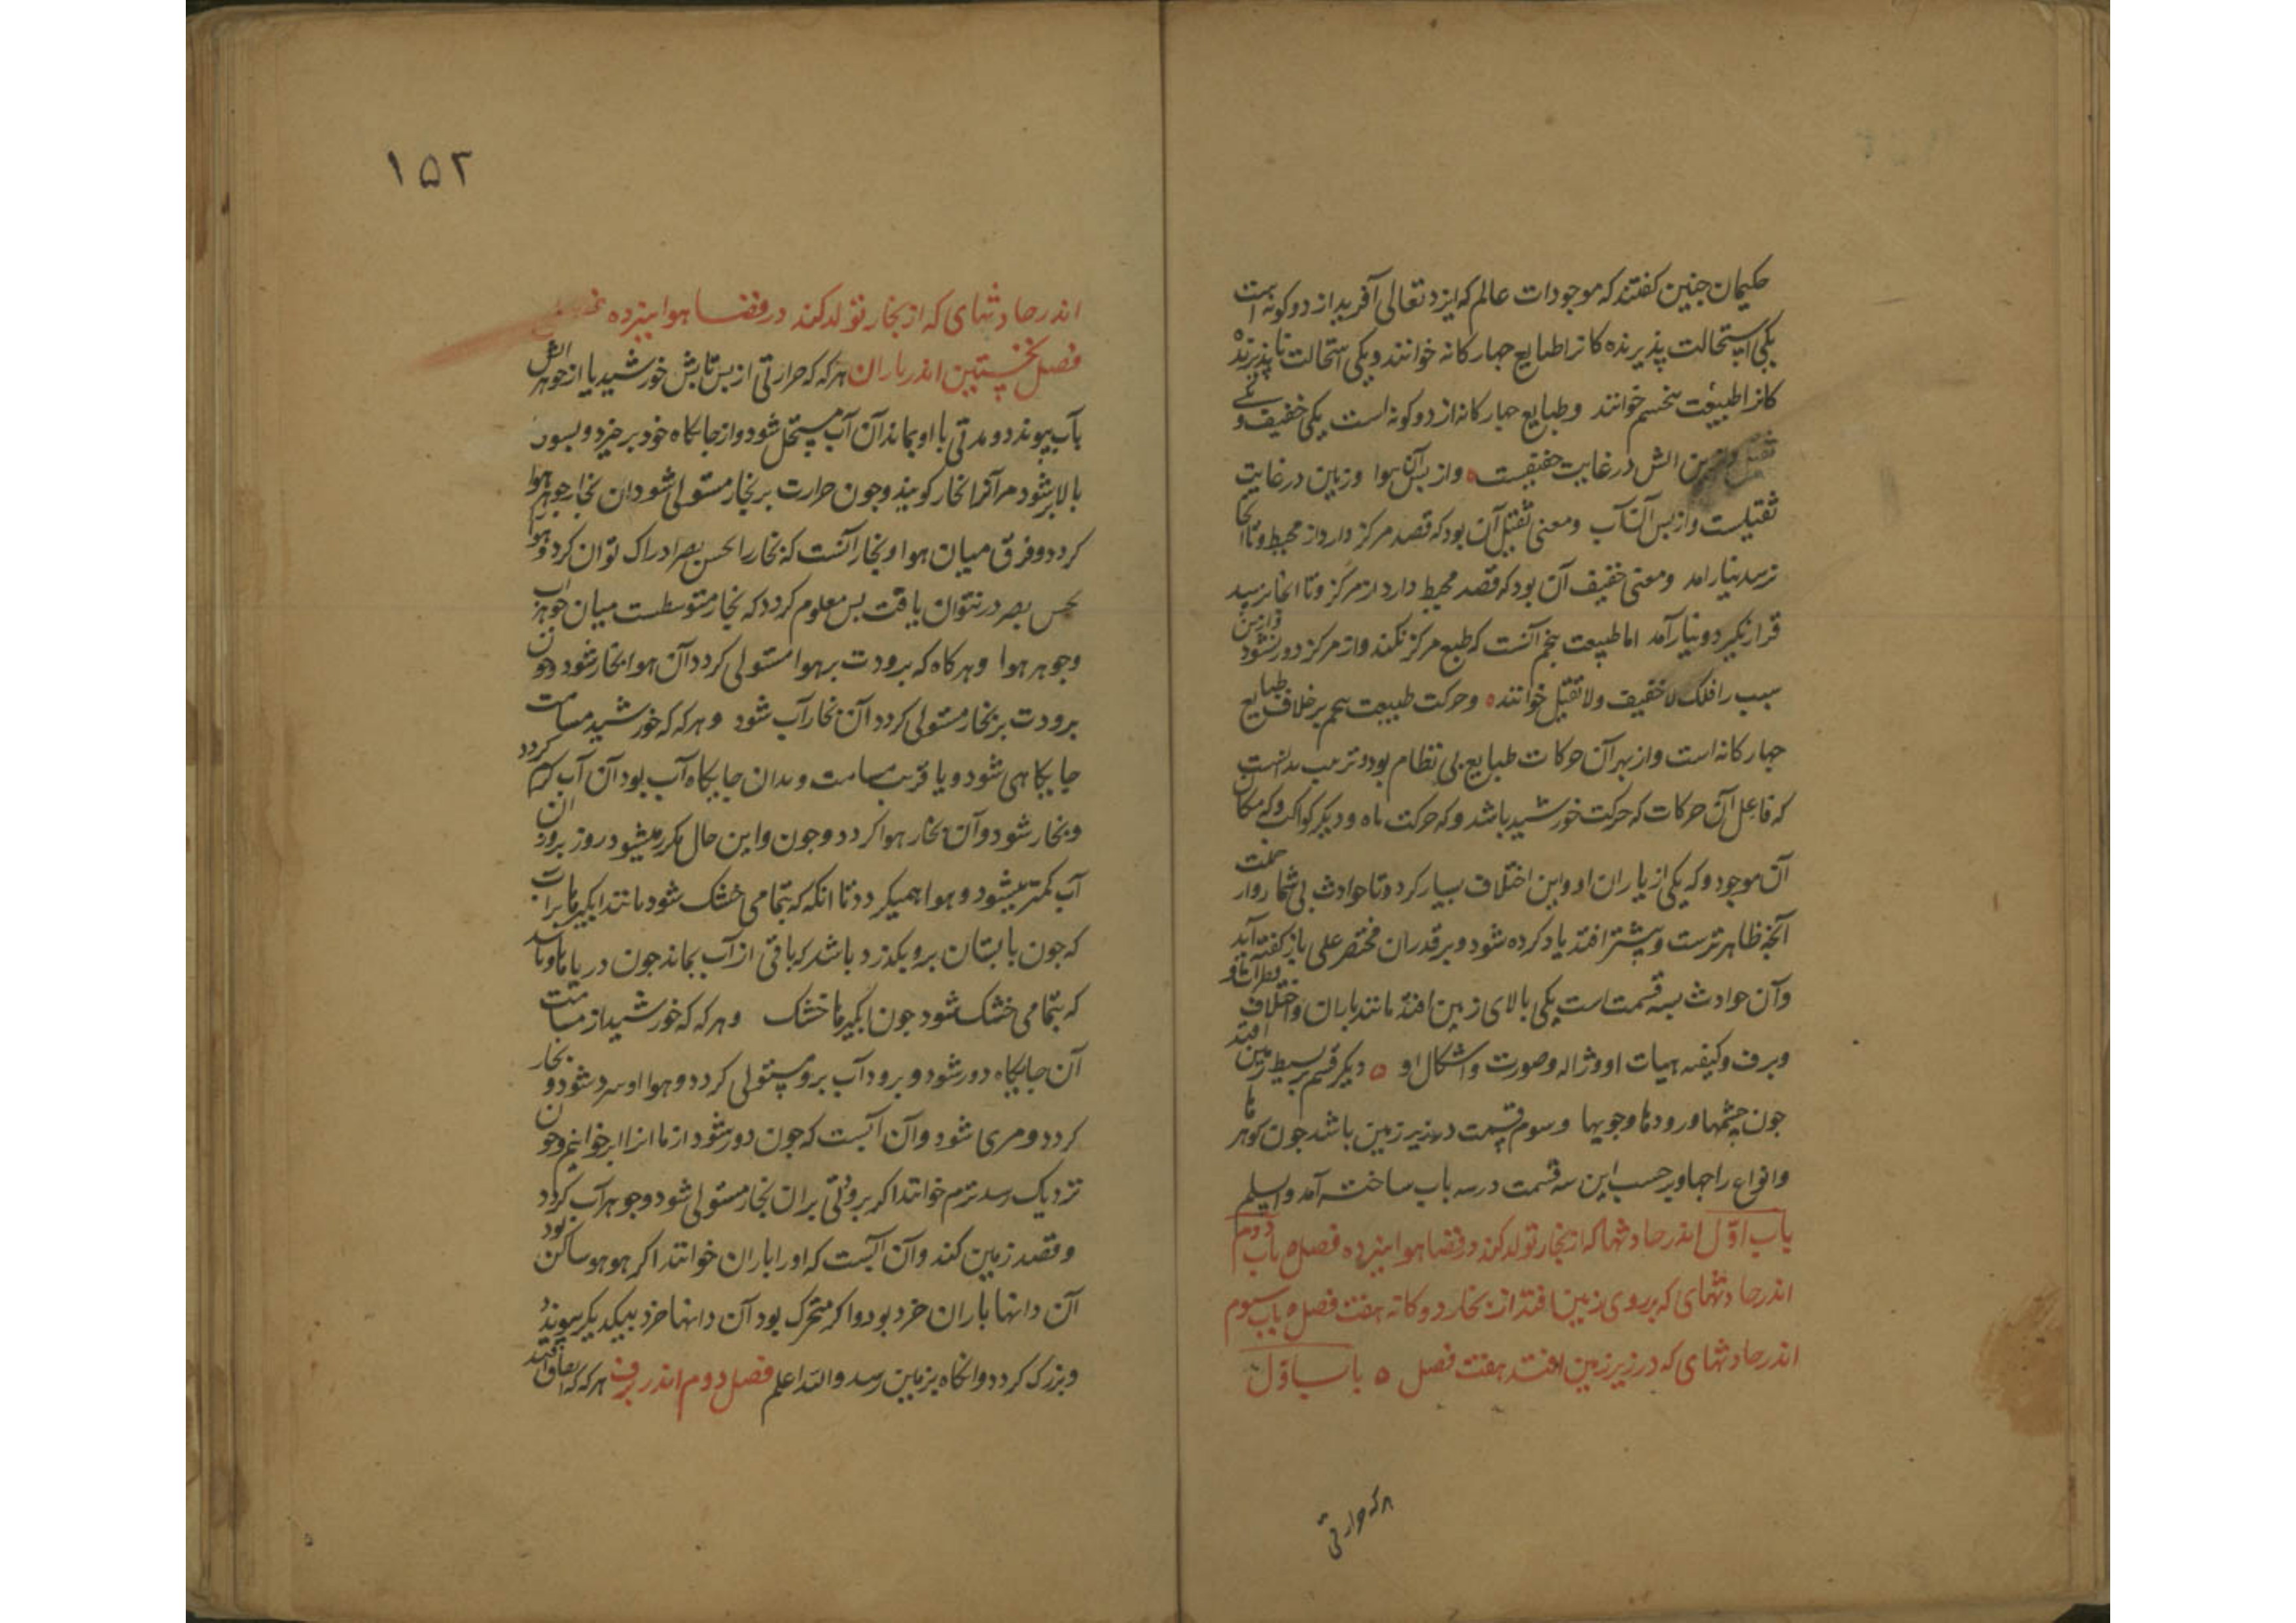 حکیمان جنین کفتند که موجودات عالم که ایزد تعالی آفرید از دو کونه است
یکی استحالت پذیرنده کانرا طبایع جهار کانه خوانند و یکی استحالت ناپذیرنده
کانرا طبیعت پنجم خوانند و طبایع جهار کانه از دو کونه است یکی خفیف و یکی
ثقیل وازین اتش در غایت خفیفست وازپس آن هوا وزمین در غایت
ثقیلست وازپس آن آب ومعنی ثقیل آن بود که قصد مرکز دارد از محیط وتا انجا
نرسد نیارامد ومعنی خفیف آن بود که قصد محیط دارد از مرکز وتا انجا نرسد
قرار نکیرد ونیارآمد اما طبیعت پنجم آنست که طبع مرکز نکند واز مرکز دور نشود وازین
سبب را فلک لا خفیف ولا ثقیل خوانند وحرکت طبیعت پنجم بر خلاف طبایع
جهار کانه است واز بهر آن حرکات طبایع بی نظام بود وترتیب بدانست
که فاعل آن حرکات که حرکت خورشید باشد وکه حرکت ماه ودیکر کواکب وکه مکان
آن موجود وکه یکی از یاران او واین اختلاف بسیار کردد وتا حوادث بی شمار
آنجه ظاهرترست وبیشتر افتد یاد کرده شود وبر قدر آن مختصر علی باز کفته آید
وآن حوادث بسه قسمت است یکی بالای زمین افتد مانند باران واختلاف قطرات او
وبرف وکیفیه هیات او وژاله وصورت واشکال او دیکر قسم بر بسیط زمین افتد
جون جشمها ورودها وجویها وسوم قسمت در زیر زمین باشد جون کوهرها
وانواع زاجها وبر حسب این سه قسمت در سه باب ساخته آمد والسلم
باب اوّل اندر حادثها که از بخار تولد کند در فضا هوا سیزده فصل باب دوم
اندر حادثهای که بر روی زمین افتد از بخار دو کانه هفت فصل باب سیوم
اندر حادثهای که در زیر زمین افتد هفت فصل باب اوّل
هر که حرارتی
۱۵۲
اندر حادثهای که از بخار تولد کند در فضا هوا سیزده
فصل نخستین اندر باران هر که که حرارتی از پس تابش خورشید یا از جوهر اتش
بآب پیوندد ومدتی با او بماند آن آب مستحل شود واز جایکاه خود بر خیزد وبسوی
بالا بر شود مر آنرا بخار کویند وجون حرارت بر بخار مستولی شود ان بخار جوهر هوا
کردد وفرق میان هوا وبخار آنست که بخار را بحس بصر ادراک توان کرد وهوا
بحس بصر در نتوان یافت پس معلوم کردد که بخار متوسطست میان جوهر آب
وجوهر هوا وهر کاه که برودت بر هوا مستولی کردد آن هوا بخار شود وجون
برودت بر بخار مستولی کردد آن بخار آب شود وهر که که خورشید مسامت
جایکاهی شود ویا قریب مسامت وبدان جایکاه آب بود آن آب کرم کردد
وبخار شود وآن بخار هوا کردد وجون واین حال مکرر میشود روز بروز ان
آب کمتر میشود وهوا همیکردد تا انکه که بتمامی خشک شود مانند ابکیرها
که جون تابستان برو بکذرد باشد که باقی از آب بماند جون دریاها
که بتمامی خشک شود جون ابکیرها خشک وهر که که خورشید از مسامتت
آن جایکاه دور شود وبرود آب برو مستولی کردد وهوا او سرد شود وبخار
کردد ومری شود وآن آنست که جون دور شود از ما انرا ابر خوانیم وجون
نزدیک رسد نزم خوانند اکر برودتی بران بخار مستولی شود وجوهر آب کردد
وقصد زمین کند وآن آنست که اورا باران خوانند اکر هوا ساکن بود
آن دانها باران خرد بود واکر متحرک بود آن دانها خرد بیکدیکر پیوندد
وبزرک کردد وانکاه بزمین رسد والله اعلم فصل دوم اندر برف هر که که اتفاق افتد